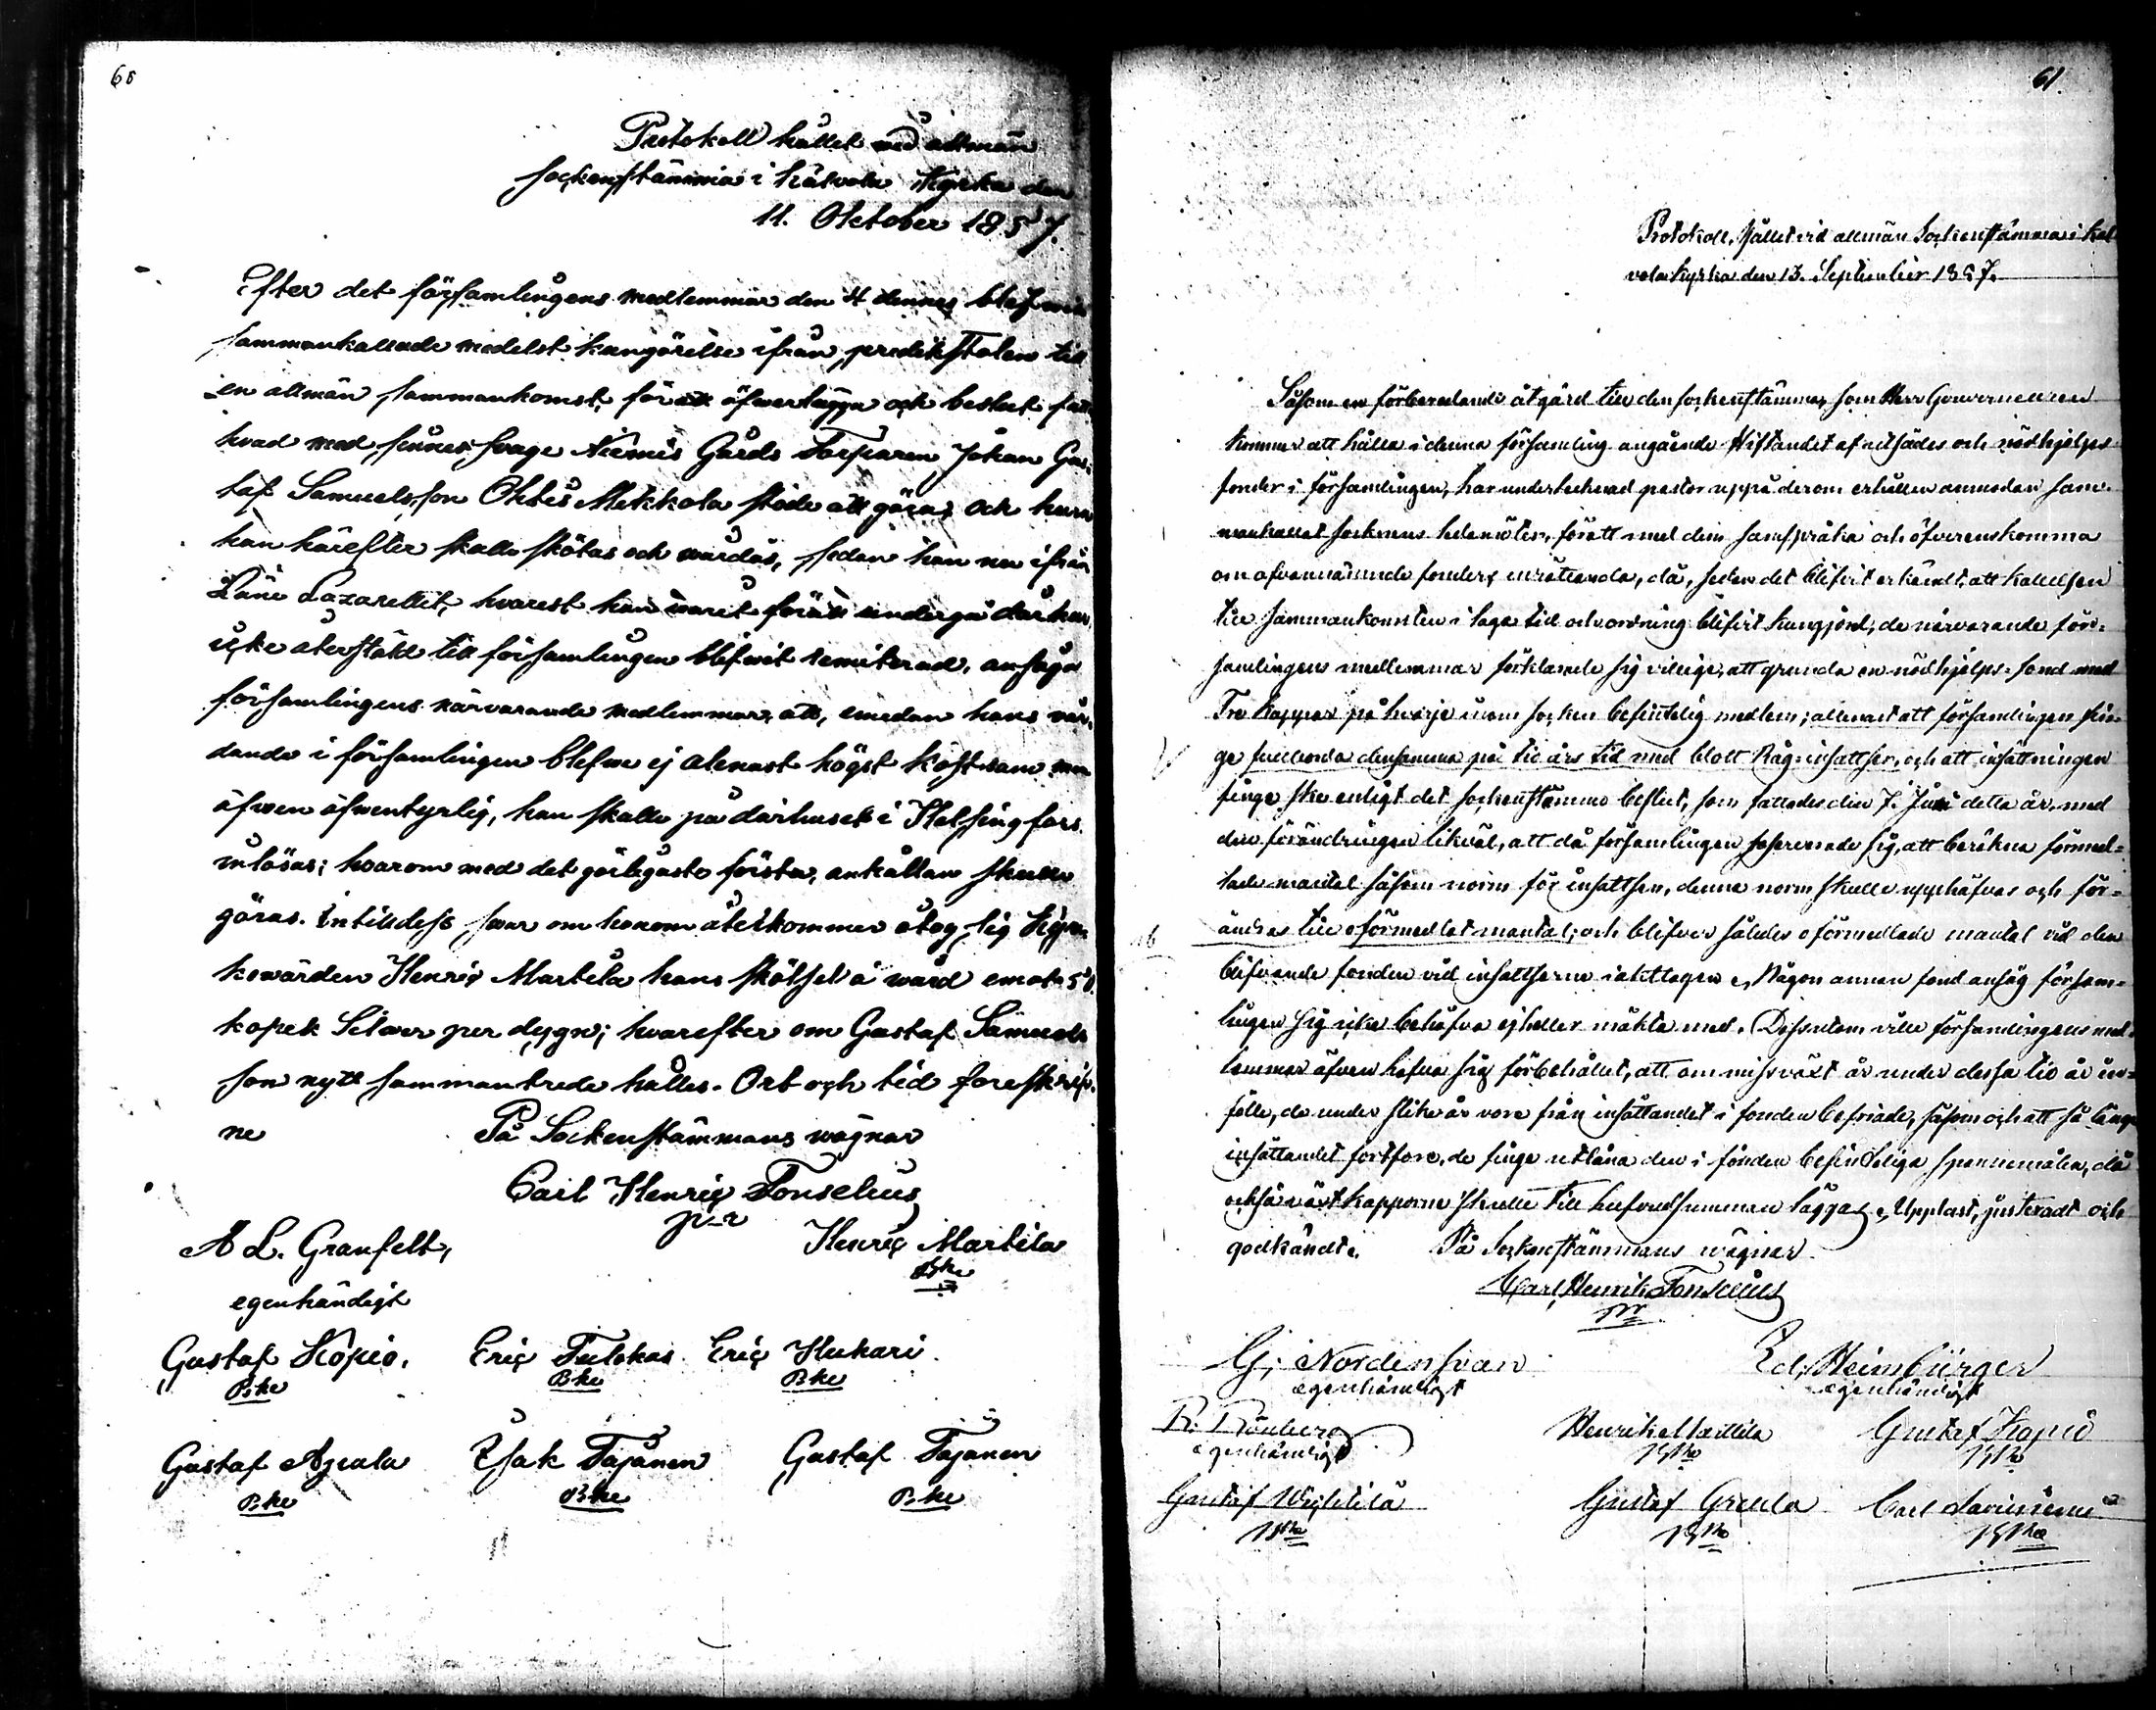 60
Protokoll hållet vid allmän
sockenstämma i Kalvola Kyrka den
11. Oktober 1857.
Efter det församlingens medlemmar den 4 dennes blifwit
sammankallade medelst kungörelse ifrån predikstolen till
en allmän sammankomst, för att öfwerlägga och beslut fatta
hvad med sinnessvage Niemis Gårds Torparen Johan Gus-
taf Samuelsson Ohtis Mekkola stode att göras och huru
han härefter skulle skötas och wårdas, sedan han nu ifrån
Läne Lazarettet, hvarest han warit för att undergå
icke återstäld till församlingen blifwit remiterad, ansågo
församlingens närvarande medlemmar, att, emedan hans vår-
dande i församlingen blefwe ej allenast högst kostsam utan
äfwen äfwentyrlig, han skulle på dårhuset i Helsingfors
inlösas; hvarom med det görligaste första, anhållan skulle
göras. Intilldess swar om honom återkommer åtog sig Kyr-
kowärden Henric Martila hans skötsel å wård emot 50
kopek Silwer per dygn; hvarefter om Gustaf Samuels-
son nytt sammanträde hålles. Ort och tid foreskrif-
ne På Sockenstämmans wägnar
Carl Henric Fonselius
p-r
A L. Granfelt, Henric Martila
egenhändigt Bke
Gustaf Kopio. Eric Tulokas Eric Hukari
Bke Bke Bke
Gustaf Agrala Isak Tajanen Gustaf Tajanen
Bke Bke Bke
61.
Protokoll, hållet vid allmän Sockenstämma i Kal
vola kyrka den 13. September 1857.
Såsom en förberedande åtgärd till den sockenstämma, som Herr Gouverneuren
kommer att hålla i denna församling angående stiftandet af utsädes och nödhjelps
fonder i församlingen, har undertecknad pastor uppå derom erhållen anmodan sam-
mankallat socknens ledamöter, för att med dem samspråka och öfverenskomma
om ofvannämnde fonders inrättande, då, sedan det blifvit erkändt, att kallelsen
till sammankomsten i laga tid och ordning blifvit kungjord, de närvarande för-
samlingens medlemmar förklarade sig villige, att grunda en nödhjelps-fond med
Tre kappar på hvarje inom socken befintelig medlem; allenast att församlingen fin-
ge fullända densamma på tio års tid med blott Råg-insattser, och att insättningen
finge ske enligt det sockenstämmo beslut, som fattades den 7. Juni detta år, med
den förändringen likväl, att då församlingen reserverade sig, att beräkna förmed-
lade mantal såsom norm för insattsen, denna norm skulle upphäfvas och för-
ändras till oförmedlat mantal; och blifver således oförmedlade mantal vid den
blifvande fonden vid insattserne iakttagen. Någon annan fond ansåg försam-
lingen sig icke behöfva ej heller mäkta med. Dessutom ville församlingens med-
lemmar äfven hafva sig förbehållet, att om missväxt år under dessa tio år in-
fölle, de under slika år vore från insättandet i fonden befriade, såsom och att så länge
insättandet fortfore, de finge utlåna den i fonden befinteliga spannemålen, då
också växt kapporne skulle till hufvudsumman läggas. Uppläst, justeradt och
godkändt. På Sockenstämmans wägnar
Carl Henrik Fonselius
pr
G. Nordensvan Ed. Heimbürger
egenhändigt egenhändigt
egenhändigt Henrik Marttila Gustaf Kopio
Gustaf Gustaf Carl